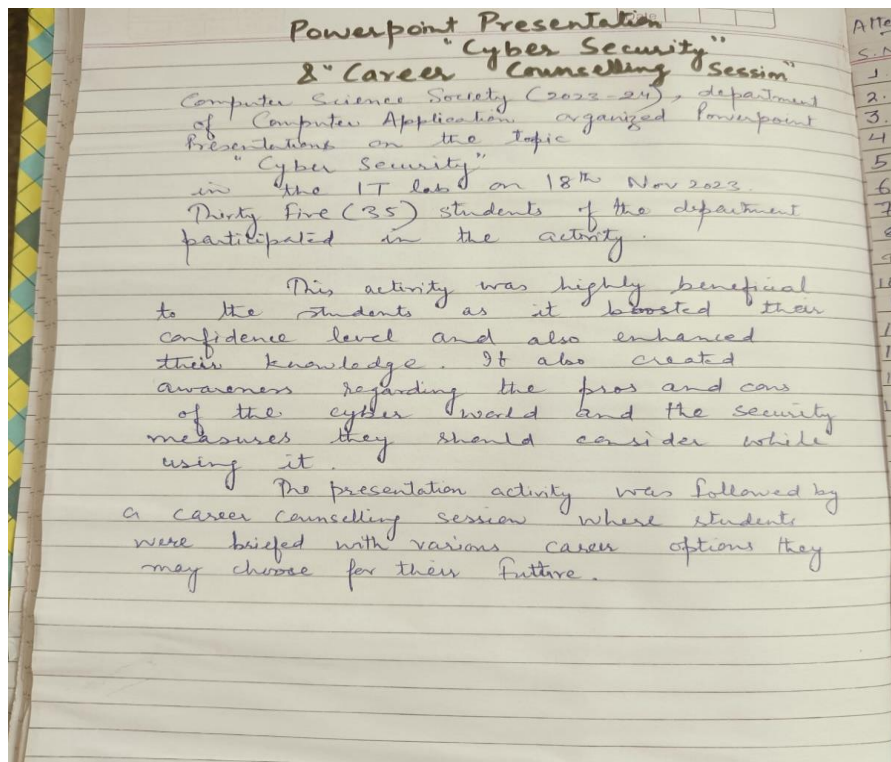 Powerpoint Presentation
"Cyber Security"
& "Career Counselling Session"
Computer Science Society (2023-24), department
of Computer Application organized Powerpoint
Presentations on the topic
"Cyber Security"
in the IT lab on 18th Nov 2023.
Thirty Five (35) students of the department
participated in the activity.
This activity was highly beneficial
to the students as it boosted their
confidence level and also enhanced
their knowledge. It also created
awareness regarding the pros and cons
of the cyber world and the security
measures they should consider while
using it.
The presentation activity was followed by
a career counselling session where students
were briefed with various career options they
may choose for their future.
Atte
S.N
1
2.
3.
4
5
6
7
8
9